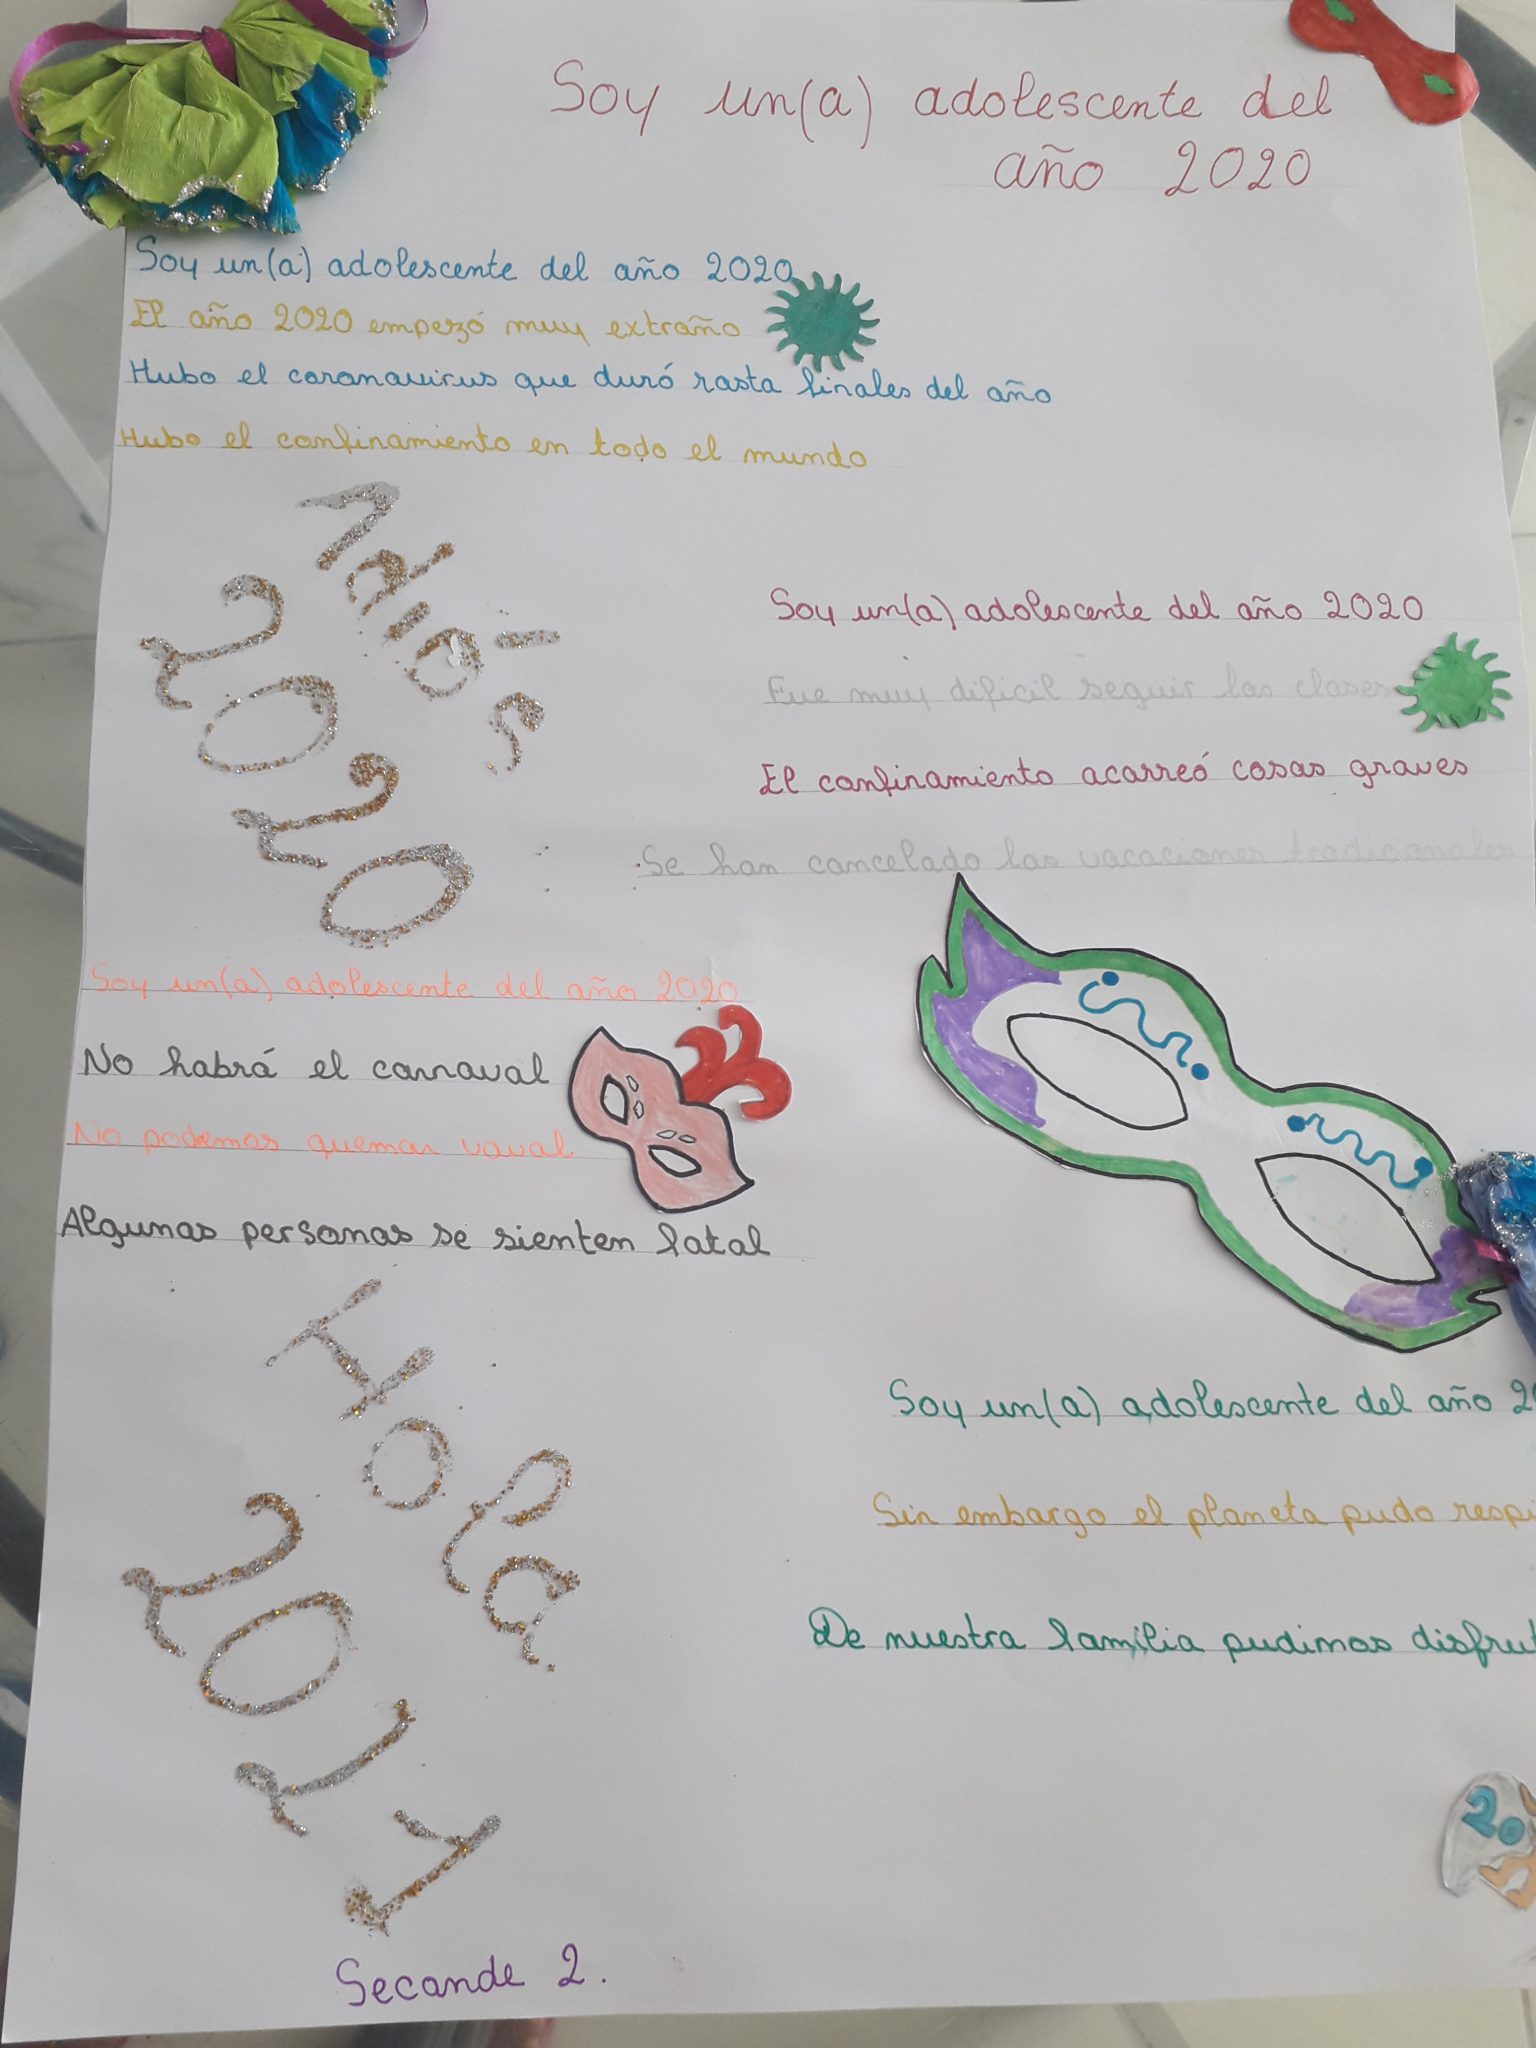 Soy un(a) adolescente del
año 2020
Soy un(a) adolescente del año 2020
El año 2020 empezó muy extraño
Hubo el coronavirus que duró rasta finales del año
Hubo el confinamiento en todo el mundo
Adiós
2020
Soy un(a) adolescente del año 2020
Fue muy dificil seguir las clases
El confinamiento acarreó cosas graves
Se han cancelado las vacaciones tradicionales
Soy un(a) adolescente del año 2020
No habrá el carnaval
No podemos quemar vaval
Algunas personas se sienten fatal
Hola
2021
Soy un(a) adolescente del año 2
Sin embargo el planeta pudo respi
De nuestra familia pudimos disfrut
20
Seconde 2.